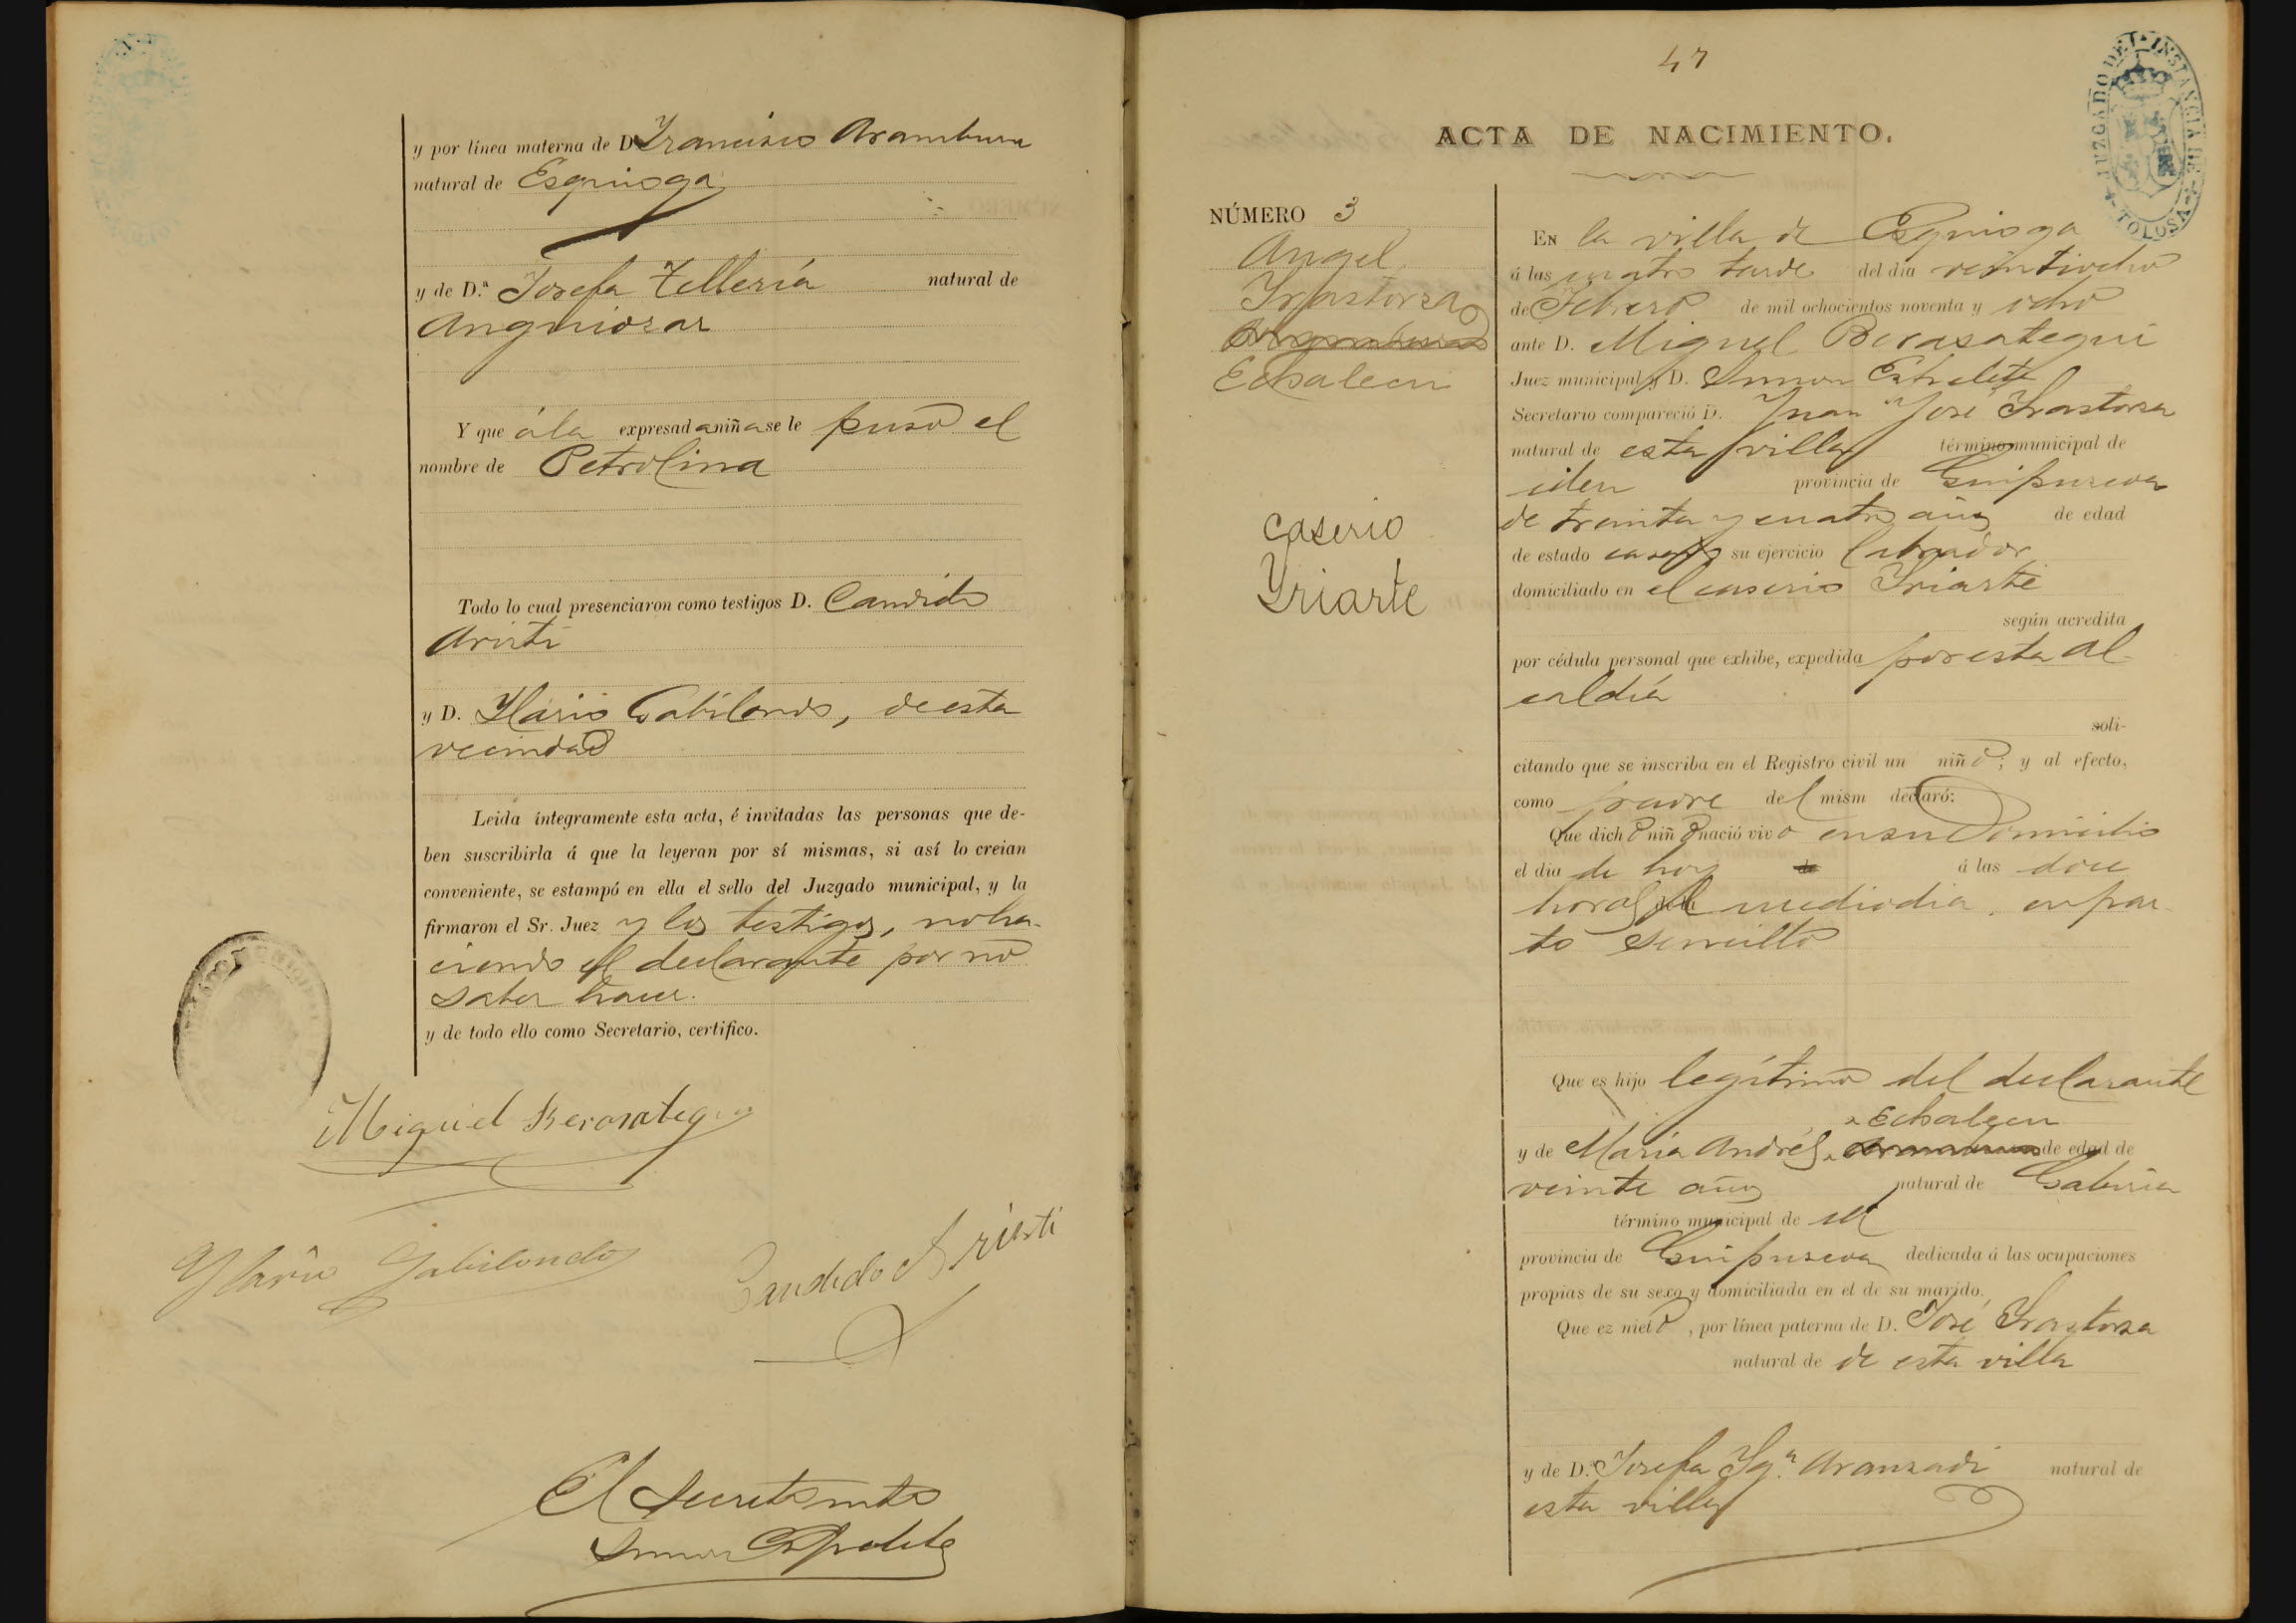 y por línea materna de D Francisco Aramburu
natural de Esquioga
y de D.ª Josefa Tellería natural de
Anguiozar
Y que á la expresada niña se le puso el
nombre de Petrolina
Todo lo cual presenciaron como testigos D. Candido
Aristi
y D. Ylario Gabilondo, de esta
vecindad
Leida íntegramente esta acta, é invitadas las personas que de-
ben suscribirla á que la leyeran por sí mismas, si así lo creian
conveniente, se estampó en ella el sello del Juzgado municipal, y la
firmaron el Sr. Juez y los testigos, no ha-
ciendo el declarante por no
saber hacer.
y de todo ello como Secretario, certifico.
Miguel Berasategui
Ylario Gabilondo
Candido Aristi
El Secretario
47
JUZGADO DE 1.ª INSTANCIA DE TOLOSA
ACTA DE NACIMIENTO.
NÚMERO 3
Angel
Irastorza
Echalecu
Caserio
Yriarte
EN la villa de Esquioga
á las cuatro tarde del día veintiocho
de Febrero de mil ochocientos noventa y ocho
ante D. Miguel Berasategui
Juez municipal y D. Simon
Secretario compareció D. Juan José Irastorza
natural de esta villa término municipal de
idem provincia de Guipuzcoa
de treinta y cuatro años de edad
de estado casado su ejercicio labrador
domiciliado en el caserio Iriarte
según acredita
por cédula personal que exhibe, expedida por esta al-
caldía
soli-
citando que se inscriba en el Registro civil un niño; y al efecto,
como padre del mism declaró:
Que dicho niño nació vivo en su domicilio
el día de hoy á las doce
horas del mediodia, en par-
to sencillo
Que es hijo legítimo del declarante
Echalecu
y de María Andrés de edad de
veinte años natural de Gabiria
término municipal de id
provincia de Guipuzcoa dedicada á las ocupaciones
propias de su sexo y domiciliada en el de su marido.
Que ez nieto, por línea paterna de D. José Irastorza
natural de de esta villa
y de D.ª Josefa Ig.ª Aranzadi natural de
esta villa